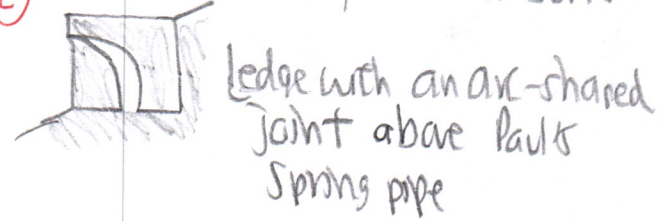 Ledge with an arc-shaped
joint above Paul's
Spring pipe